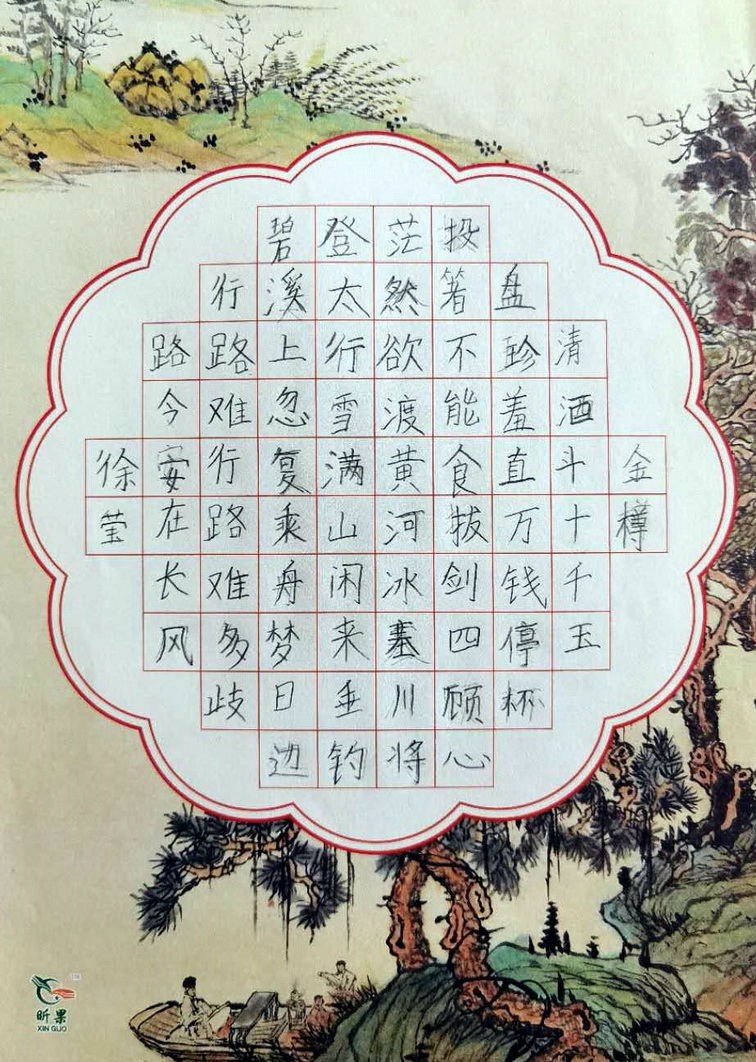 金樽
清酒斗十千玉
盘珍羞直万钱停杯
投箸不能食拔剑四顾心
茫然欲渡黄河冰塞川将
登太行雪满山闲来垂钓
碧溪上忽复乘舟梦日边
行路难行路难多歧
路今安在长风
徐莹
昕果
XIN GUO